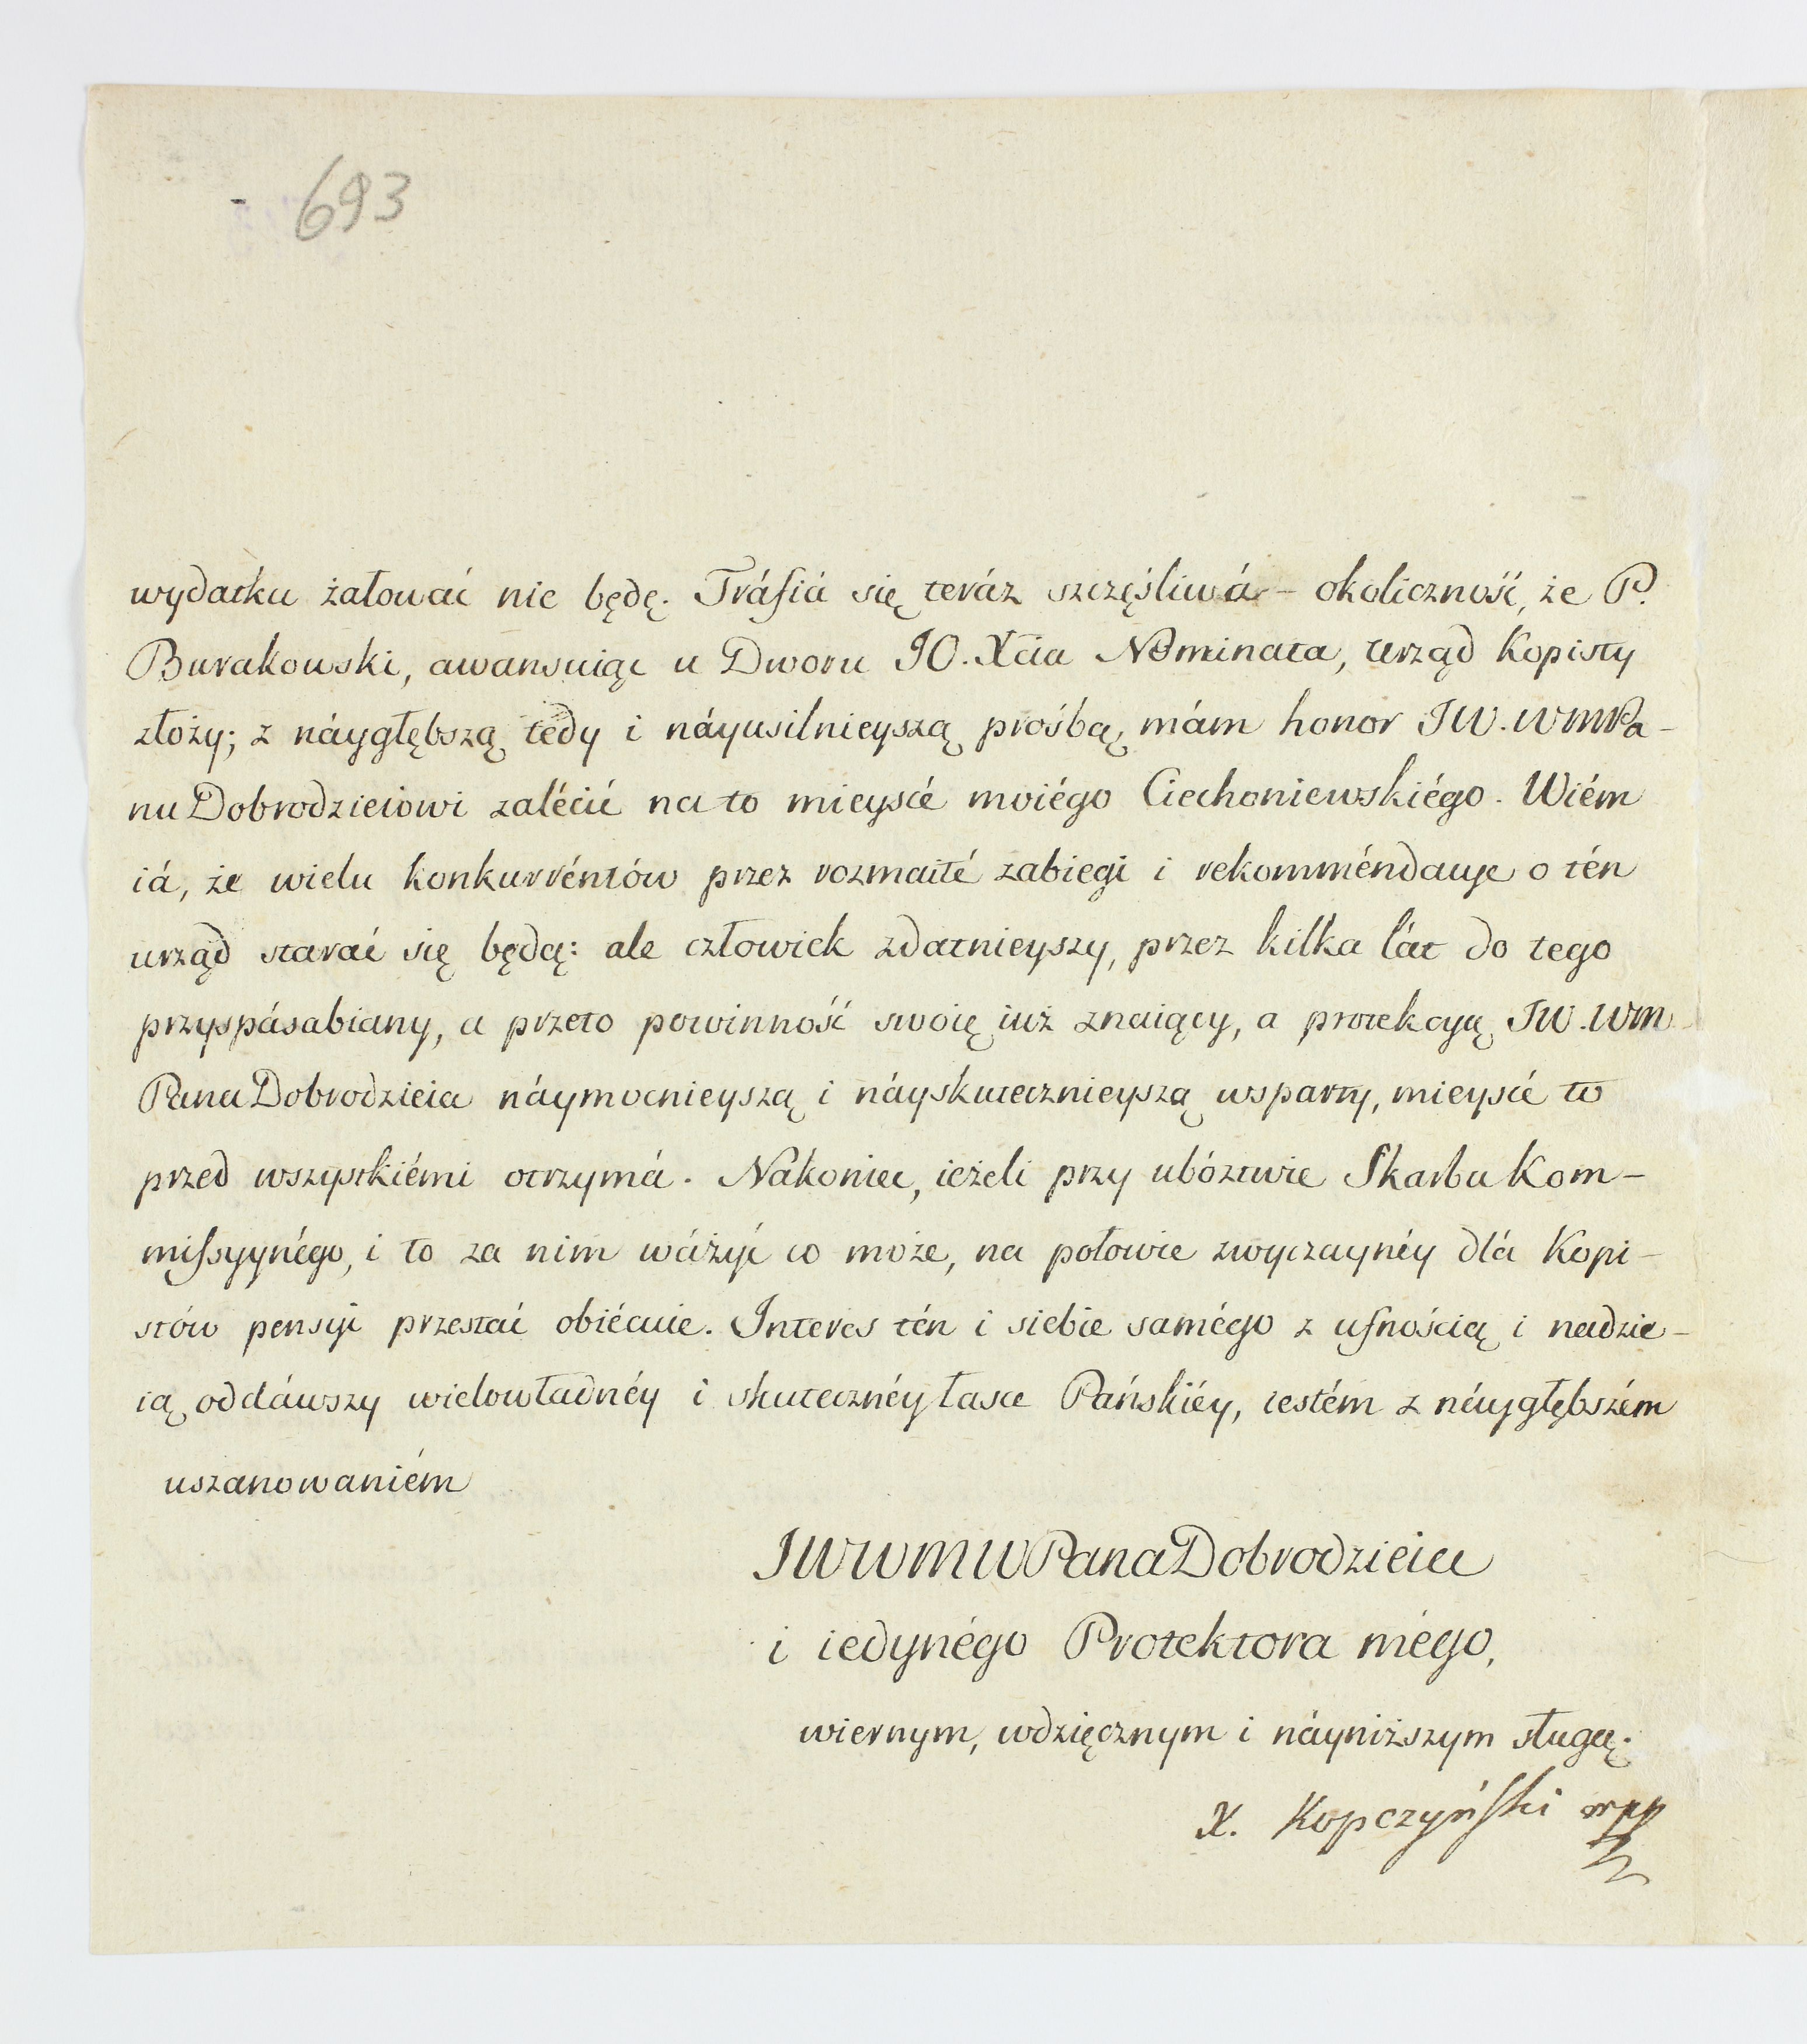 693
wydatku żałować nie będę. Tráfiá się teráz szczęśliwá - okoliczność, że P.
Burakowski, awansuiąc u Dworu JO. Xcia Nominata, urząd Kopisty
złoży; z náygłębszą tedy i náyusilnieyszą prośbą, mám honor JW. WMPa-
nu Dobrodzieiowi zalécić na to mieyscé moiégo Ciechoniewskiégo. Wiém
iá, że wielu konkurréntów przez rozmaité zabiegi i rekomméndacye o tén
urząd starać się będą: ale człowiek zdatnieyszy, przez kilka lát do tego
przyspásabiany, a przeto powinność swoię iuż znaiący, a protekcyą JW. WM
Pana Dobrodzieia náymocnieyszą i náyskutecznieyszą wsparty, mieyscé to
przed wszystkiémi otrzymá. Nakoniec, ieżeli przy ubóztwie Skarbu Kom-
missyynégo, i to za nim wáżyć co może, na połowie zwyczaynéy dlá Kopi-
stów pensyi przestać obiécuie. Interes tén i siebie samégo z ufnością i nadzie-
ią oddáwszy wielowładnéy i skutecznéy łasce Pańskiéy, iestém z náygłębszém
uszanowaniém
JWWMWPana Dobrodzieia
i iedynégo Protektora mégo,
wiernym, wdzięcznym i náyniższym sługą.
X. Kopczyński mpp